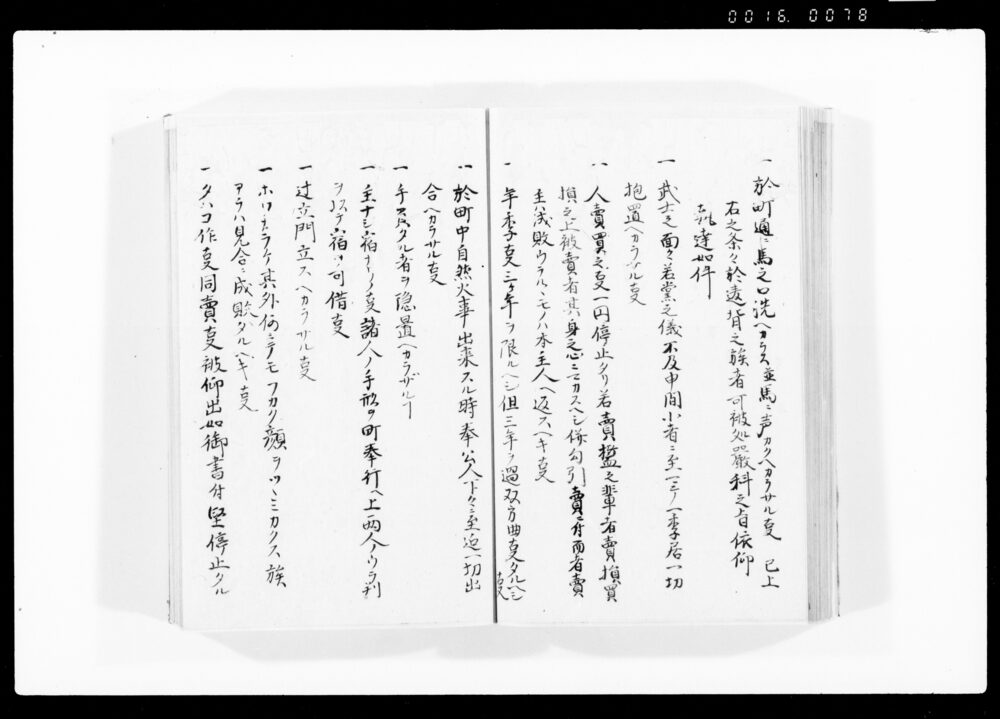 0016. 0078
一 於町通ニ馬之口洗ヘカラス並馬ニ声カクヘカラサル叓 已上
右之条々於違背之族者可被処厳科之旨依仰
執達如件
一 武士之面々若党之儀不及申間小者ニ至マテ一季居一切
抱置ヘカラサル叓
一 人賣買之叓一円停止タリ若賣濫之輩者賣損買
損之上被賣者其身之心ニマカスヘシ併勾引賣ニ付而者賣
主ハ成敗ウラルヽモノハ本主人ヘ返スヘキ叓
一 年季叓三ヶ年ヲ限ルヘシ但三年ヲ過双方曲叓タルヘシ
叓
一 於町中自然火事出来スル時奉公人下々ニ至迄一切出
合ヘカラサル叓
一 手負タル者ヲ隠置ヘカラザルー
一 主ナシ宿ナトノ叓諸人ノ手形ヲ町奉行ヘ上両人ノウラ判
ヲ以テ宿ヲ可借叓
一 辻立門立スヘカラサル叓
一 ホウカラケ其外何ニテモフカク顔ヲツヽミカクス族
アラハ見合ニ成敗タルヘキ叓
一 タハコ作叓同賣叓被仰出如御書付堅停止タル